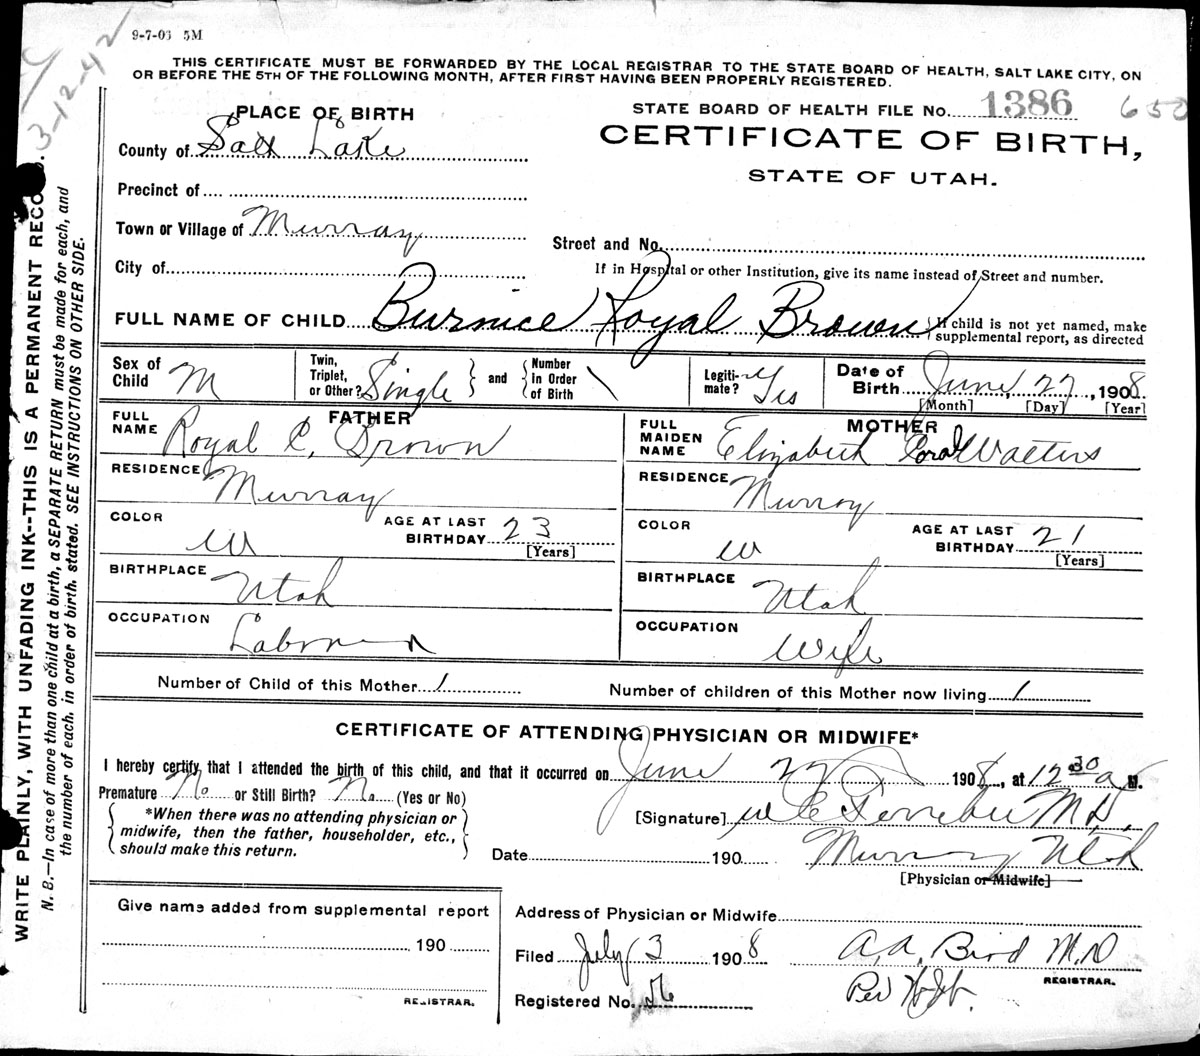 9-7-03 5M
3-12-42
THIS CERTIFICATE MUST BE FORWARDED BY THE LOCAL REGISTRAR TO THE STATE BOARD OF HEALTH, SALT LAKE CITY, ON
OR BEFORE THE 5TH OF THE FOLLOWING MONTH, AFTER FIRST HAVING BEEN PROPERLY REGISTERED.
STATE BOARD OF HEALTH FILE No. 1386 650
CERTIFICATE OF BIRTH,
STATE OF UTAH.
PLACE OF BIRTH
County of Salt Lake
Precinct of
Town or Village of Murray
Street and No.
City of
If in Hospital or other Institution, give its name instead of Street and number.
FULL NAME OF CHILD Burnice Royal Brown
If child is not yet named, make
supplemental report, as directed
Sex of Child M
Twin, Triplet, or Other? Single and Number in Order of Birth
Legitimate? Yes
Date of Birth June, 27, 1908
[Month] [Day] [Year]
FATHER
FULL NAME Royal C. Brown
RESIDENCE Murray
COLOR W
AGE AT LAST BIRTHDAY 23
[Years]
BIRTHPLACE Utah
OCCUPATION Laborer
MOTHER
FULL MAIDEN NAME Elizabeth Coral Walters
RESIDENCE Murray
COLOR W
AGE AT LAST BIRTHDAY 21
[Years]
BIRTHPLACE Utah
OCCUPATION Wife
Number of Child of this Mother 1
Number of children of this Mother now living 1
CERTIFICATE OF ATTENDING PHYSICIAN OR MIDWIFE*
I hereby certify that I attended the birth of this child, and that it occurred on June 27 1908, at 12 30 a M.
Premature No or Still Birth? No (Yes or No)
*When there was no attending physician or
midwife, then the father, householder, etc.,
should make this return.
[Signature] M.D.
Date 190 Murray Utah
[Physician or Midwife]
Give name added from supplemental report
190
REGISTRAR.
Address of Physician or Midwife
Filed July 3 1908 A. A. Bird M.D
REGISTRAR.
Registered No. Per
WRITE PLAINLY, WITH UNFADING INK--THIS IS A PERMANENT RECO
N. B.—In case of more than one child at a birth, a SEPARATE RETURN must be made for each, and
the number of each, in order of birth, stated. SEE INSTRUCTIONS ON OTHER SIDE.